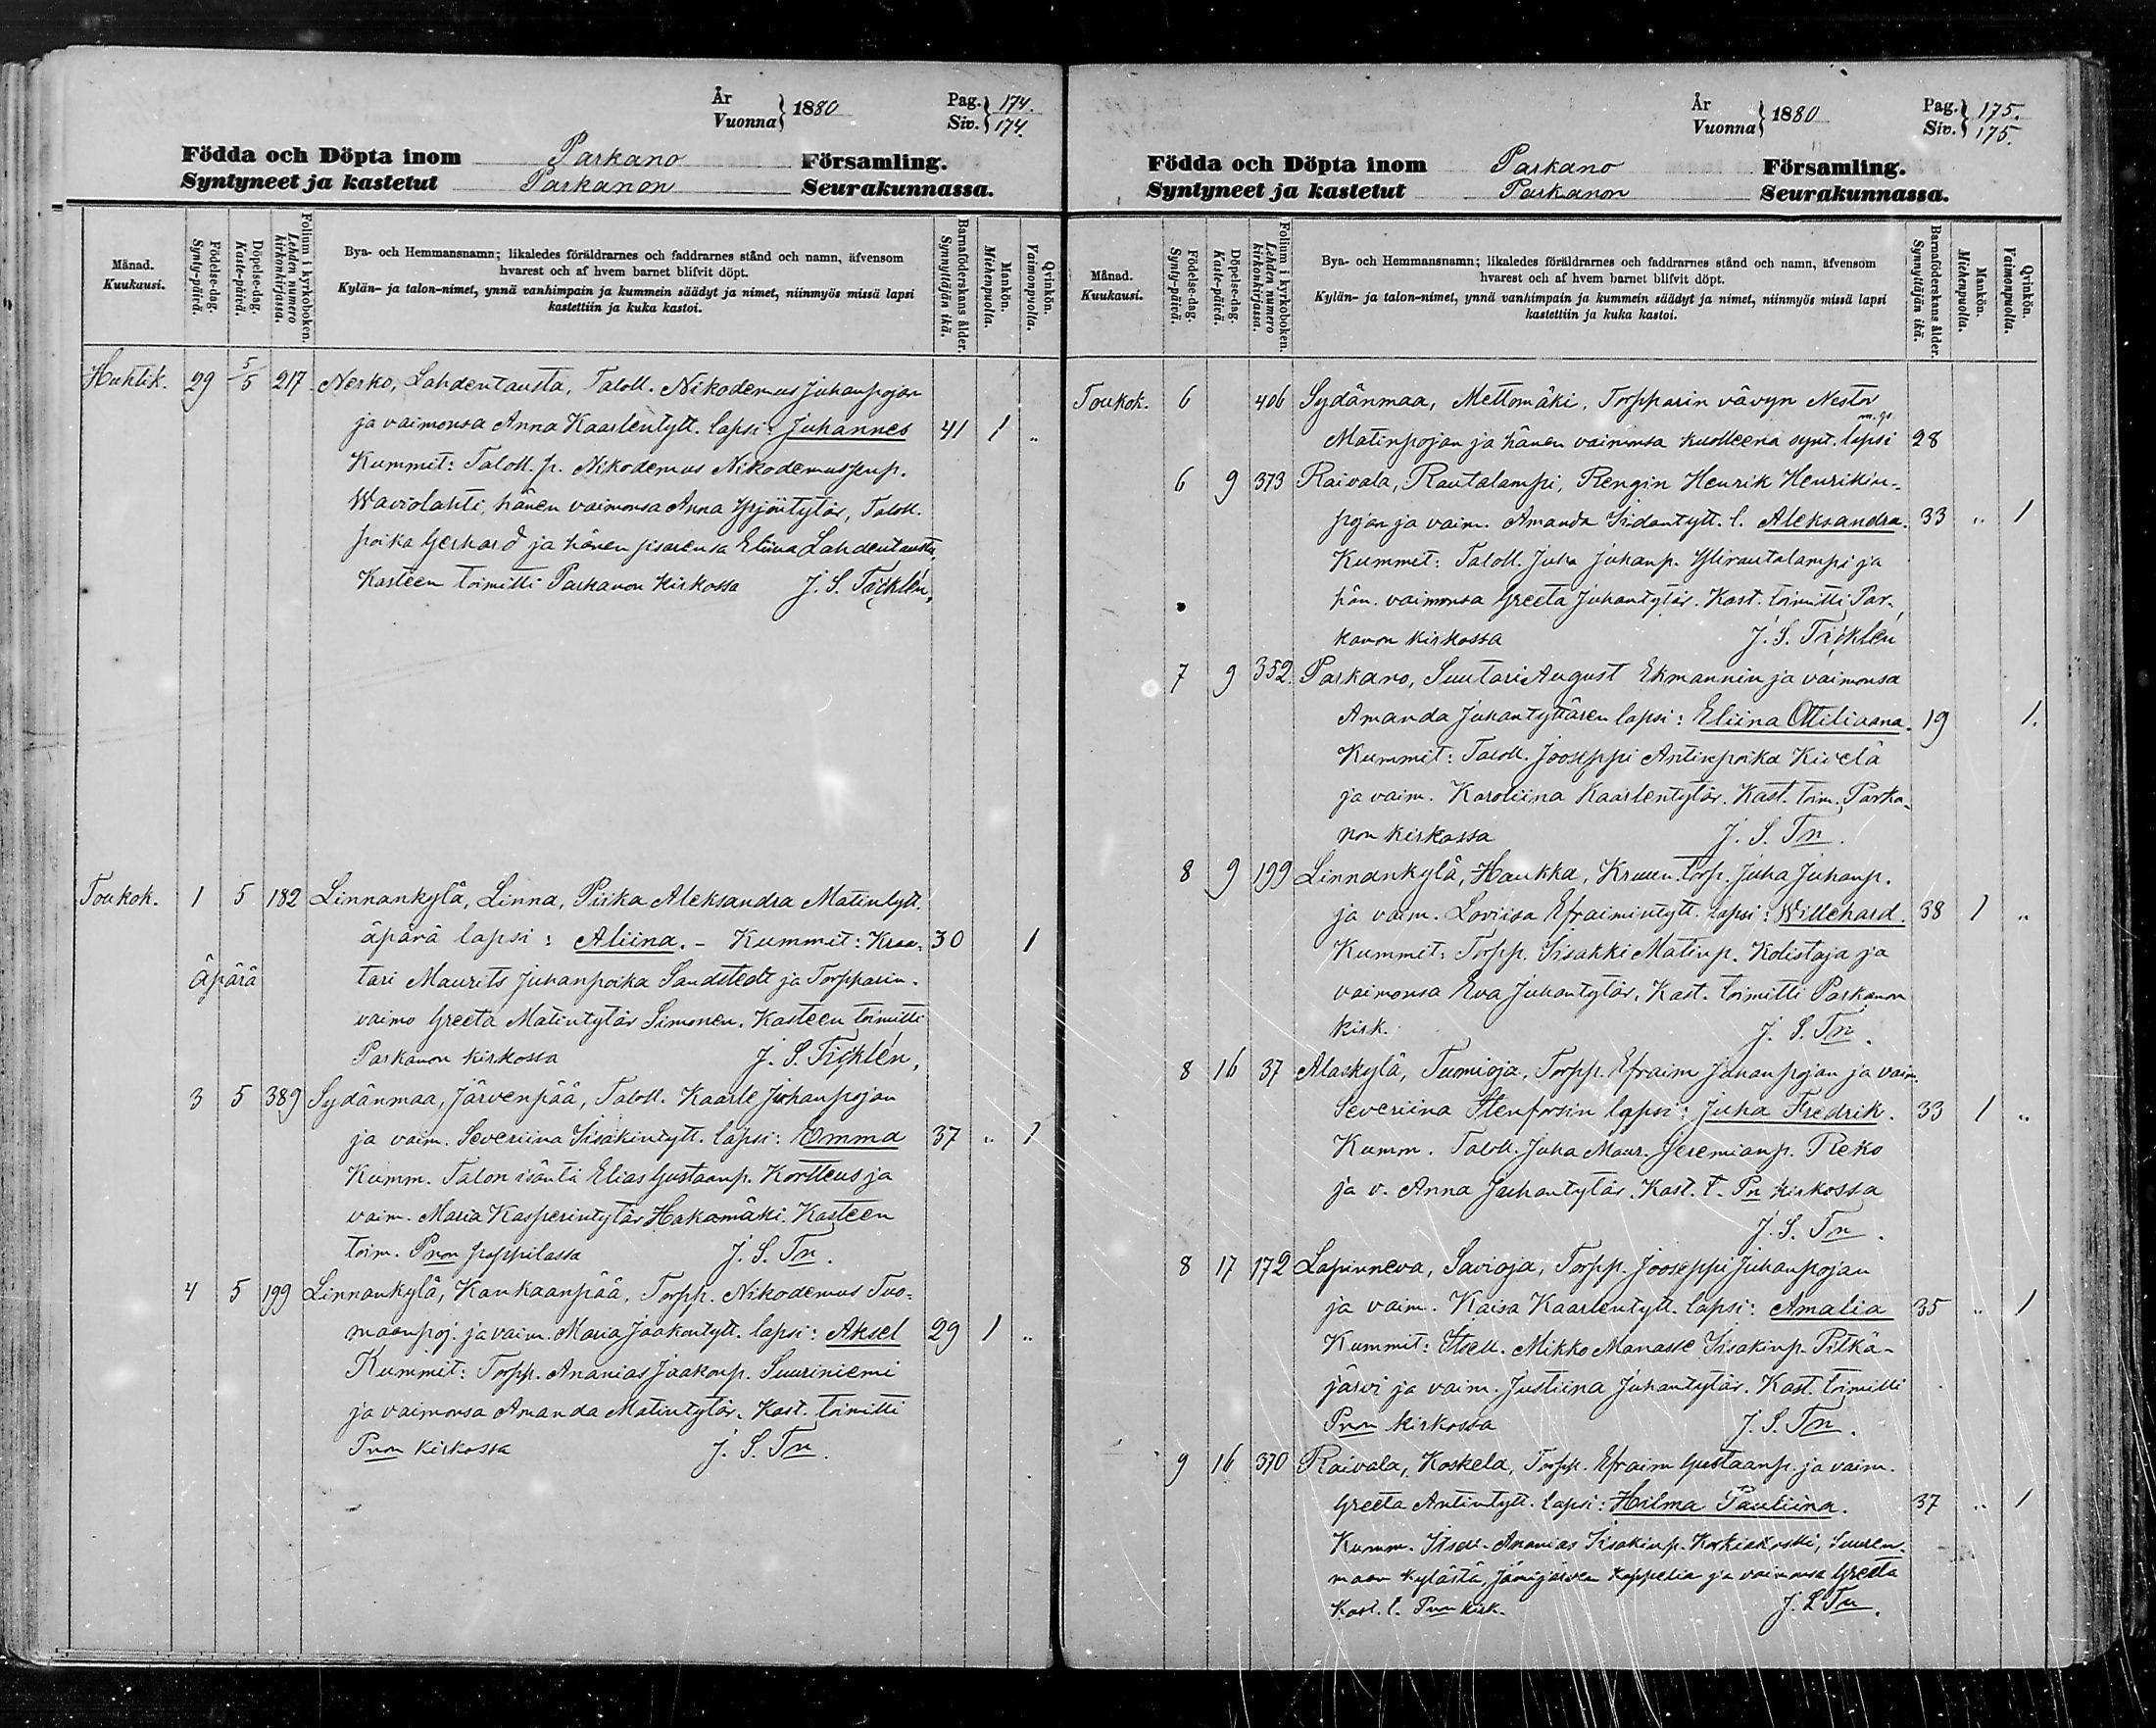 År
Vuonna } 1880
Pag. } 174.
Siv. } 174.
Födda och Döpta inom Parkano Församling.
Syntyneet ja kastetut Parkanon Seurakunnassa.
Månad.
Kuukausi.
Födelse-dag.
Synty-päivä.
Döpelse-dag.
Kaste-päivä.
Folium i kyrkoboken.
Lehden numero kirkonkirjassa.
Bya- och Hemmansnamn; likaledes föräldrarnes och faddrarnes stånd och namn, äfvensom
hvarest och af hvem barnet blifvit döpt.
Kylän- ja talon-nimet, ynnä vanhimpain ja kummein säädyt ja nimet, niinmyös missä lapsi
kastettiin ja kuka kastoi.
Barnaföderskans ålder.
Synnyttäjän ikä.
Mankön.
Miehenpuolia.
Qvinkön.
Vaimonpuolia.
Huhtik. 29 5/5 217. Nerko, Lahdentausta, Taloll. Nikodemus Juhanpojan
ja vaimonsa Anna Kaarlentytt. lapsi: Juhannes 41 1 "
Kummit: Taloll. p. Nikodemus Nikodemusenp.
Waviolahti, hänen vaimonsa Anna Yrjöntytär, Taloll.
poika Gerhard ja hänen sisarensa Eliina Lahdentausta
Kasteen toimitti Parkanon kirkossa J. S. Täcklén.
Toukok. 1 5 182 Linnankylä, Linna, Piika Aleksandra Matintytt.
äpärä lapsi: Aliina. - Kummit: Kraa= 30 1
äpärä tari Maurits Juhanpoika Sandstedt ja Torpparin.
vaimo Greeta Matintytär Simonen. Kasteen toimitti
Parkanon kirkossa J. S. Täcklén.
3 5 389 Sydänmaa, Järvenpää, Taloll. Kaarle Juhanpojan
ja vaim. Severiina Iisakintytt. lapsi: Emma 37 " 1
Kumm. Talon isäntä Elias Gustaanp. Kortteus ja
vaim. Maria Kasperintytär Hakamäki. Kasteen
toim. Pnon pappilassa J. S. Tn.
4 5 199 Linnankylä, Kankaanpää, Torpp. Nikodemus Tuo=
maanpoj. ja vaim. Maria Jaakontytt. lapsi: Aksel 29 1 "
Kummit: Torpp. Ananias Jaakonp. Suuriniemi
ja vaimonsa Amanda Matintytär. Kast. toimitti
Pnon kirkossa J. S. Tn.
År
Vuonna } 1880
Pag. } 175.
Siv. } 175.
Födda och Döpta inom Parkano Församling.
Syntyneet ja kastetut Parkanon Seurakunnassa.
Månad.
Kuukausi.
Födelse-dag.
Synty-päivä.
Döpelse-dag.
Kaste-päivä.
Folium i kyrkoboken.
Lehden numero kirkonkirjassa.
Bya- och Hemmansnamn; likaledes föräldrarnes och faddrarnes stånd och namn, äfvensom
hvarest och af hvem barnet blifvit döpt.
Kylän- ja talon-nimet, ynnä vanhimpain ja kummein säädyt ja nimet, niinmyös missä lapsi
kastettiin ja kuka kastoi.
Barnaföderskans ålder.
Synnyttäjän ikä.
Mankön.
Miehenpuolia.
Qvinkön.
Vaimonpuolia.
Toukok. 6 406 Sydänmaa, Mettomäki. Torpparin vävyn Nestor
Matinpojan ja hänen vaimonsa kuolleena synt. lapsi 28
6 9 373 Raivala, Rautalampi, Rengin Henrik Henrikin=
pojan ja vaim. Amanda Iidantytt. l. Aleksandra. 33 " 1
Kummit: Taloll. Juha Juhanp. Ylirautalampi ja
hän. vaimonsa Greeta Juhantytär. Kast. toimitti Par-
kanon kirkossa J. S. Täcklén
7 9 352. Parkano, Suutari August Ekmannin ja vaimonsa
Amanda Juhantyttären lapsi: Eliina Ottiliaana. 19 1.
Kummit: Taloll. Jooseppi Antinpoika Kivelä
ja vaim. Karoliina Kaarlentytär. Kast. toim. Parka-
non kirkossa J. S. Tn.
8 9 199 Linnankylä, Haukka, Kruun.torp. Juha Juhanp.
ja vaim. Loviisa Efraimintytt. lapsi: Willehard. 38 1 "
Kummit: Torpp. Iisakki Matinp. Kolistaja ja
vaimonsa Eva Juhantytär. Kast. toimitti Parkanon
kirk. J. S. Tn.
8 16 37 Alaskylä, Tuomioja, Torpp. Efraim Juhanpojan ja vaim.
Severiina Stenforsin lapsi: Juha Fredrik. 33 1 "
Kumm. Taloll. Juha Maur. Jeremianp. Reko
ja v. Anna Juhantytär. Kast. t. Pn kirkossa
J. S. Tn.
8 17 172 Lapinneva, Savioja, Torpp. Jooseppi Juhanpojan
ja vaim. Kaisa Kaarlentytt. lapsi: Amalia 35 " 1
Kummit: Itsell. Mikko Manasse Iisakinp. Pitkä-
järvi ja vaim. Justiina Juhantytär. Kast. toimitti
Pnon kirkossa J. S. Tn.
9 16 370 Raivala, Koskela, Torpp. Efraim Gustaanp. ja vaim.
Greeta Antintytt. lapsi: Hilma Pauliina. 37 " 1
Kumm. Itsell. Ananias Iisakinp. Korkiakoski, Suuren-
maan kylästä, Jämijärven kappelia ja vaimonsa Greeta
Kast. t. Pnon kirk. J. S. Tn.